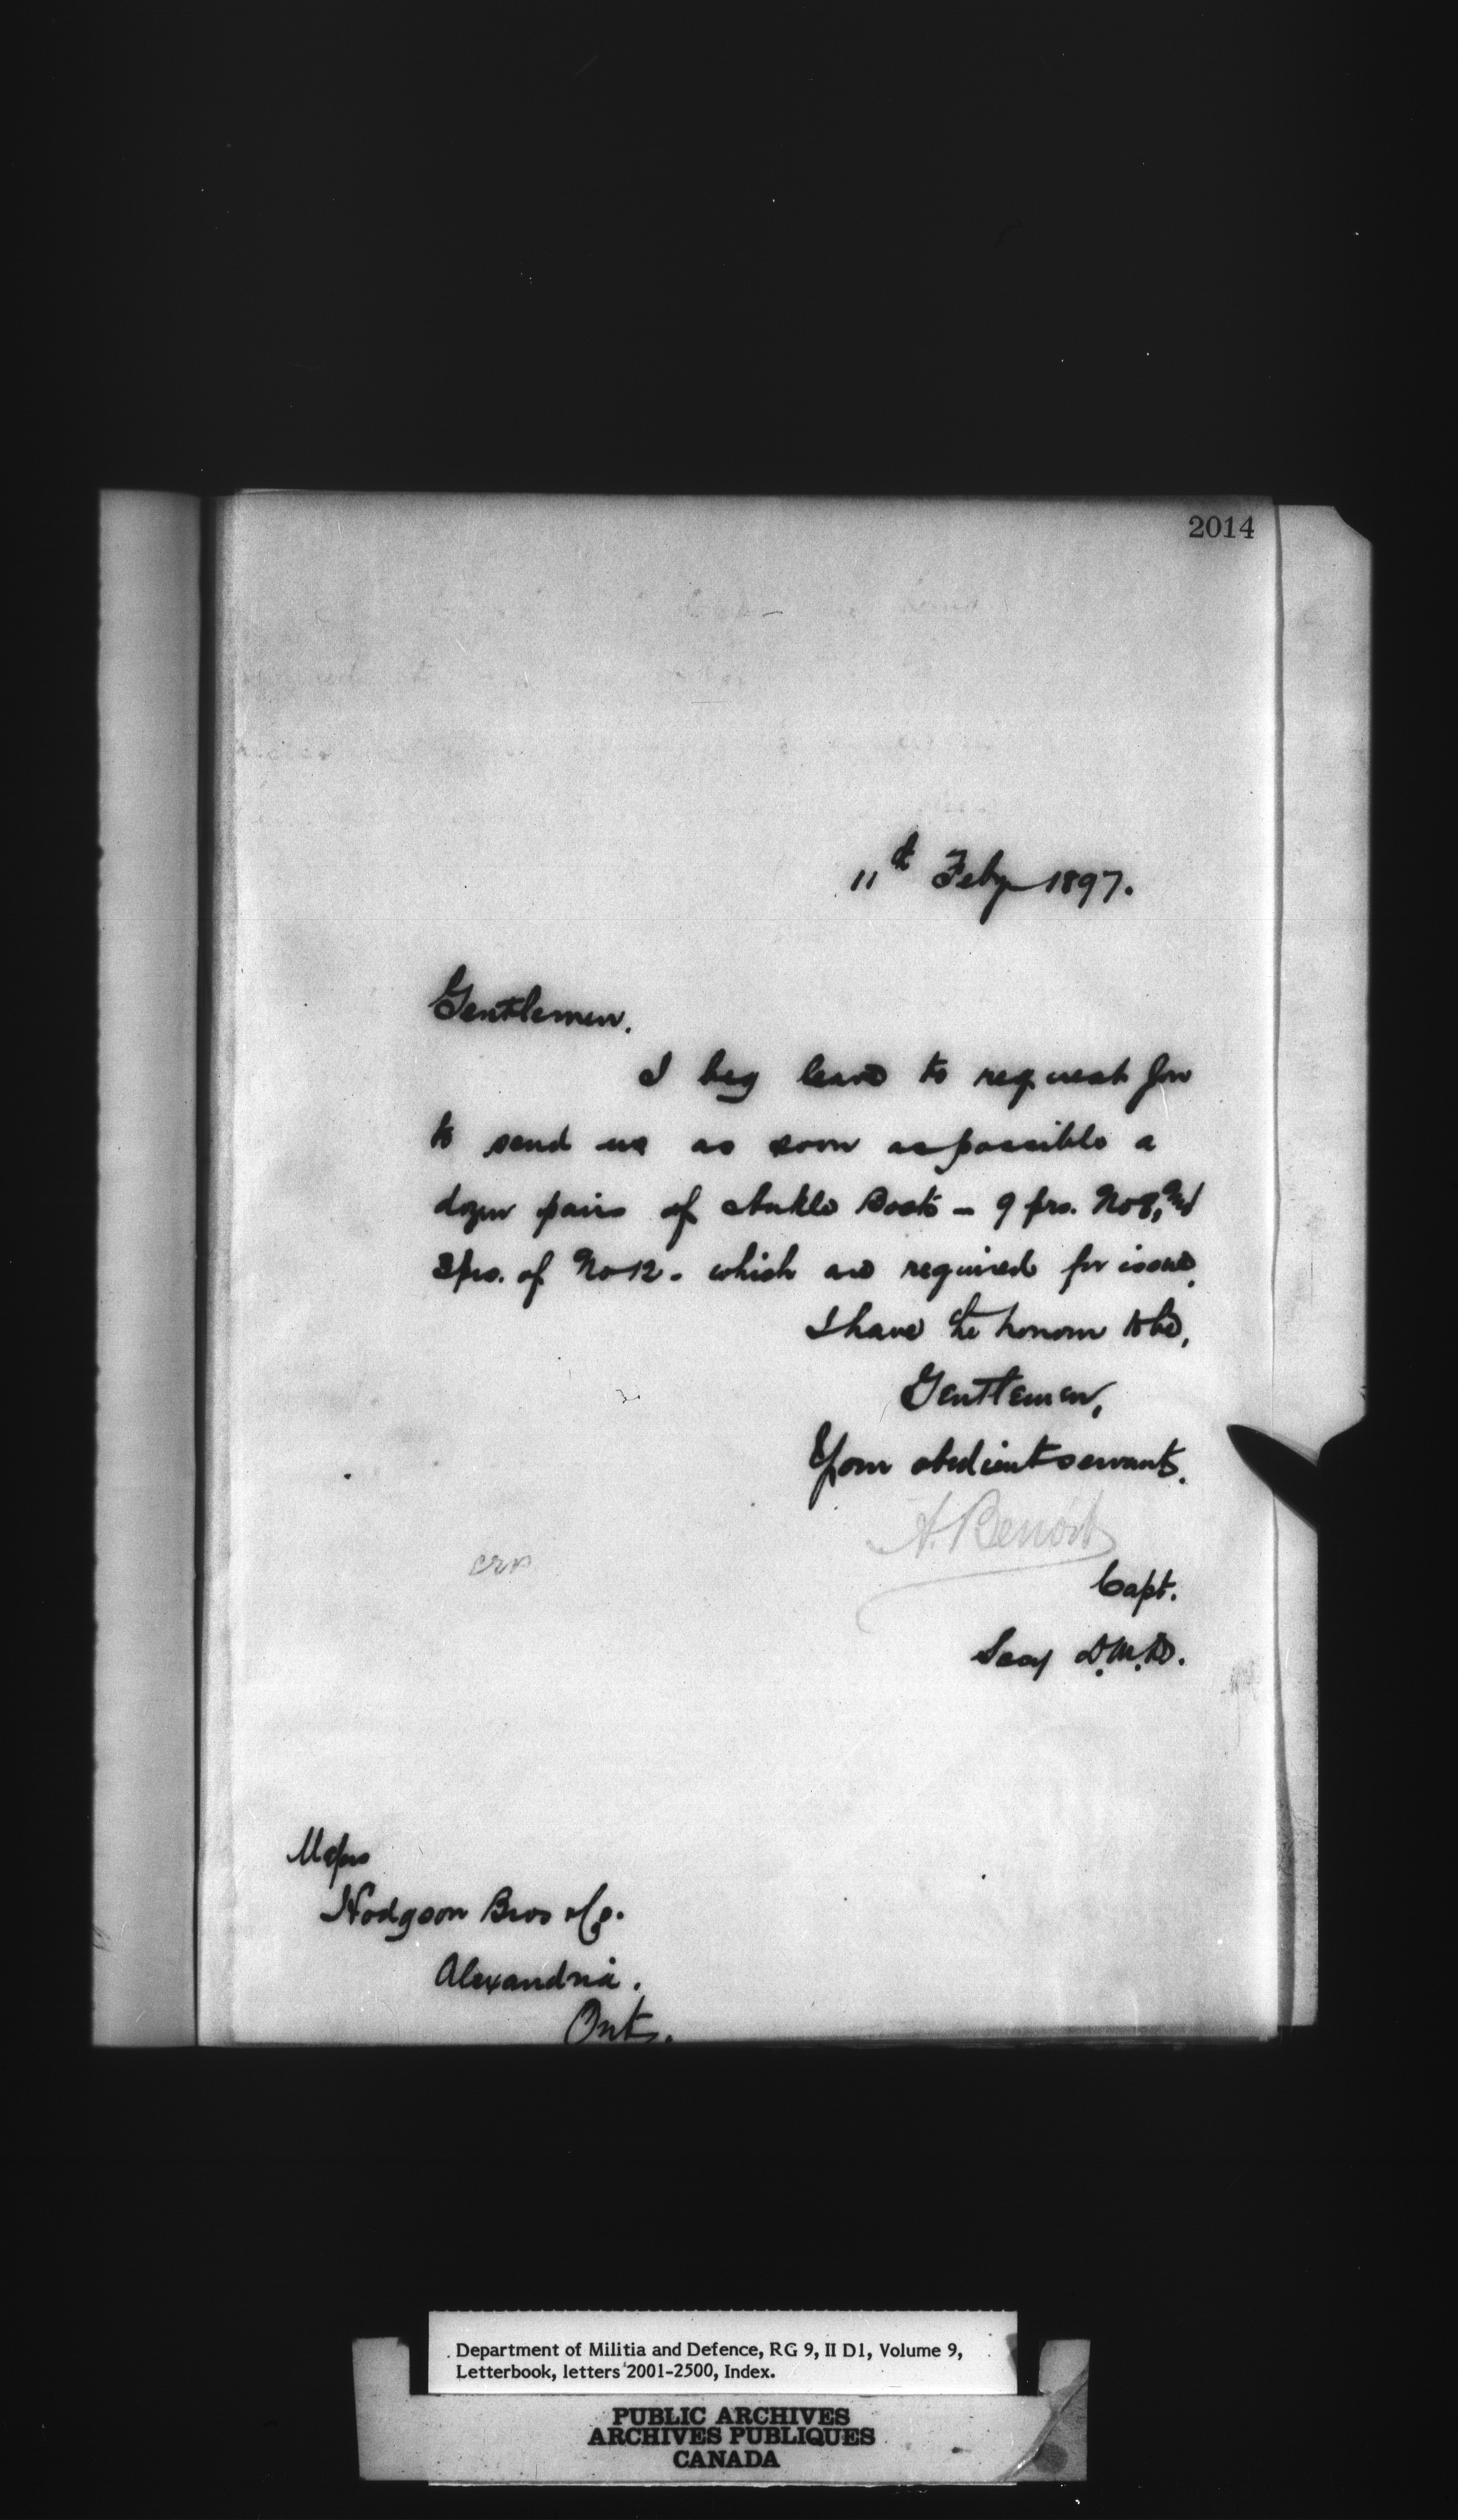 2014
11th Feby 1897.
Gentlemen.
I beg leave to request you
to send us as soon as possible a
dozen pairs of Ankle Boots - 9 prs. No 8, and
3 prs. of No 12. which are required for issue.
I have the honour to be,
Gentlemen,
Your obedient servant.
A. Benoit
Capt.
Secy D.M.D.
Messrs
Hodgson Bros & Co.
Alexandria.
Ont.
Department of Militia and Defence, RG 9, II D1, Volume 9,
Letterbook, letters 2001-2500, Index.
PUBLIC ARCHIVES
ARCHIVES PUBLIQUES
CANADA